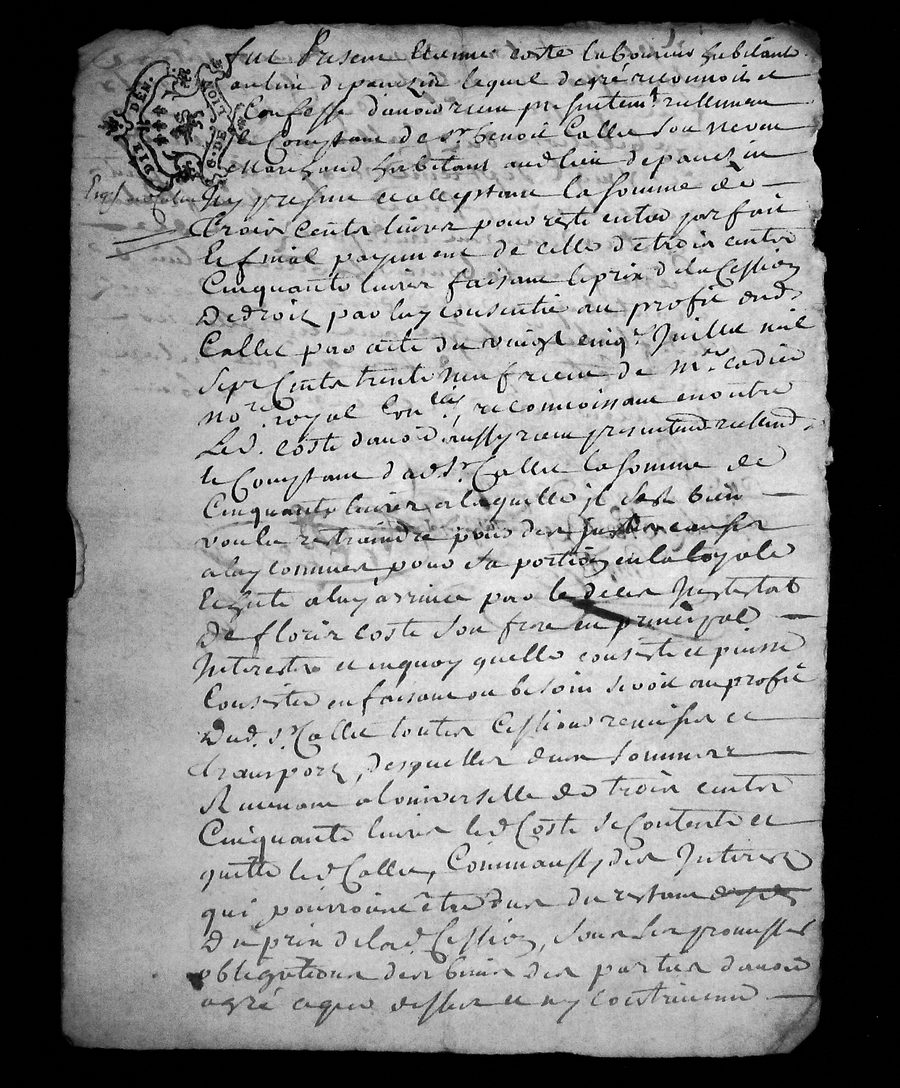 DIX DEN.
G. DE HUIT
fut Present Etienne Coste laboureur habitant
au lieu de pauzin lequel de gré reconnoit et
Confesse d'avoir receu presentemt réellement
le Comptant de sr. benoit Callet son neveu
Marchand habitant aud. lieu de pauzin
icy present et acceptant la somme de
trois cents livres pour reste entier parfait
et final payement de celle de trois cents
Cinquante livres faisant le prix de la Cession
De droit par luy consentie au profit dud.
Callet par acte du vingt cinq. Juillet mil
Sept Cents trente neuf receu de Me.
nore. royal reconnoissant en outre
Led. Coste d'avoir aussy receu presentemt réellemt
le Comptant dud. sr. Callet la somme de
Cinquante livres a laquelle il s'est bien
voulu restraindre pour des justes causes
a luy connues pour sa portion en la
Echute a luy arrivée par le deces Intestat
De floris Coste son frere en principal
Interests et en quoy quelle consiste et puisse
Consister en faisant ou besoin seroit au profit
Dud. sr. Callet toutes Cessions remises et
transport, desquelles deux sommes
Revenant a l'universelle de trois cents
Cinquante livres led. Coste se Contente et
quitte led. Callet, Comme aussy des Interests
qui pourroient être dus du restant
Du prix de lad. Cession, sous les promesses
obligations des biens des parties d'avoir
agré ce que dessus et n'y contrevenir